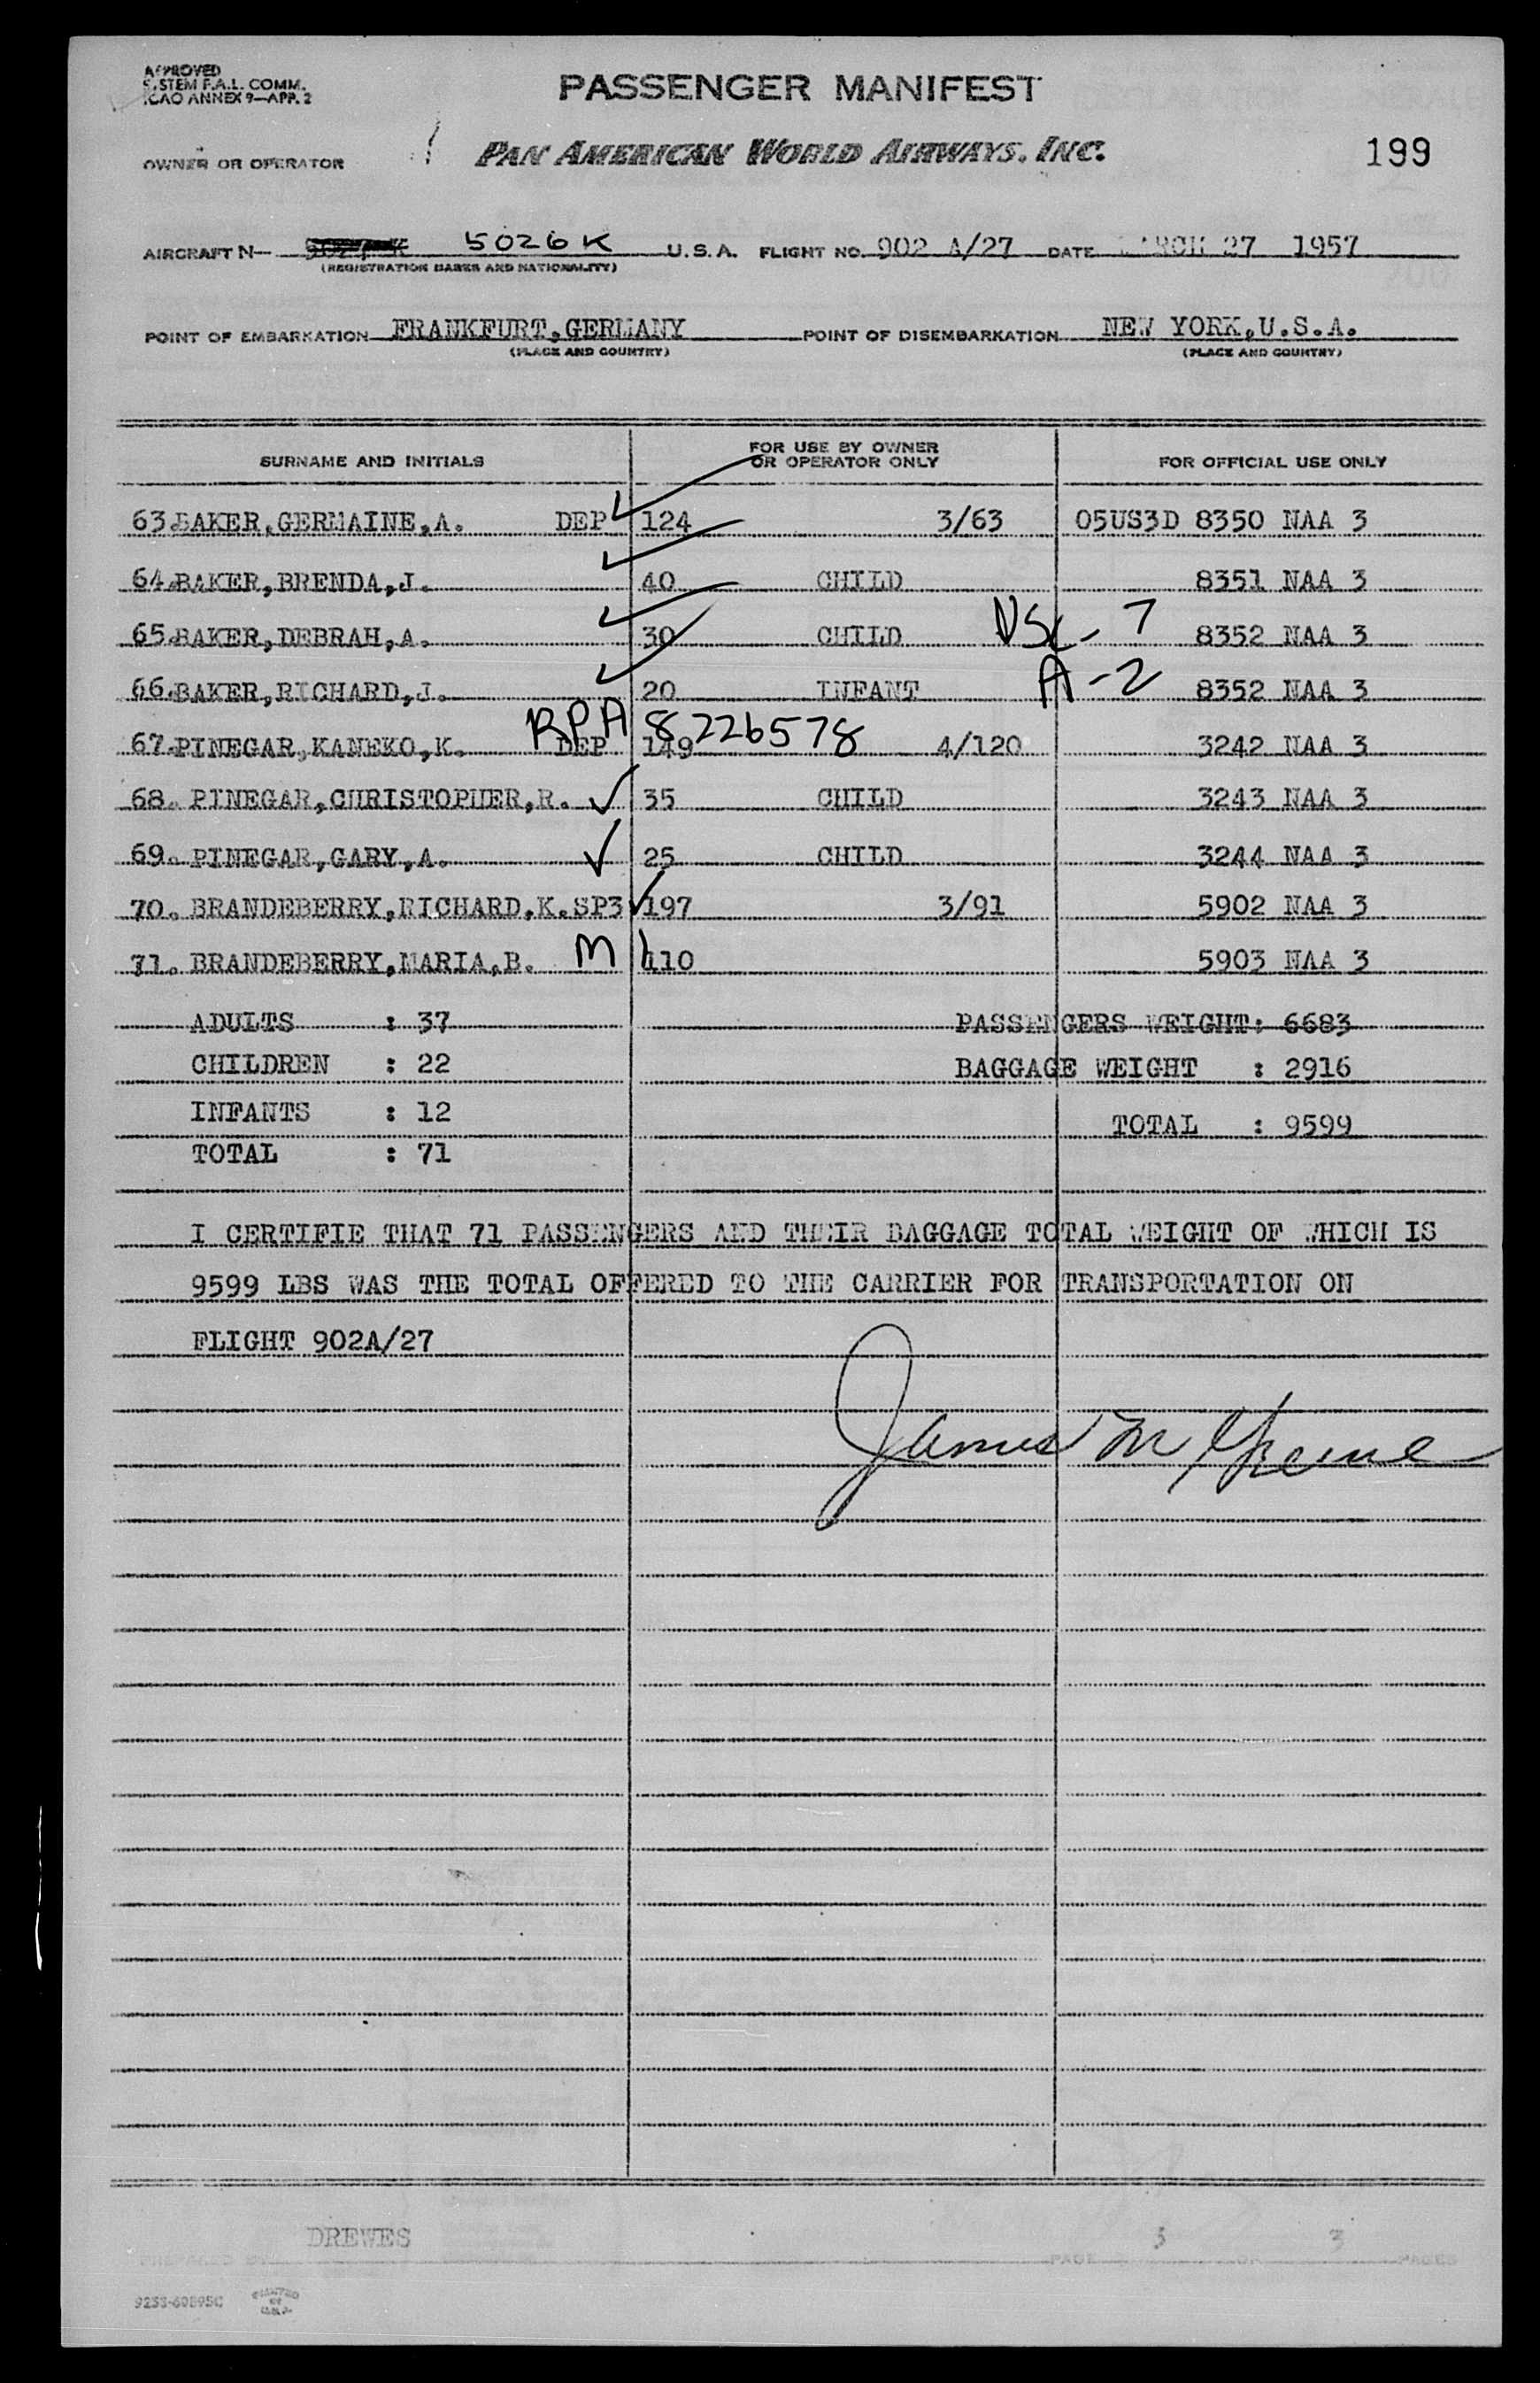 APPROVED
SYSTEM F.A.L. COMM.
ICAO ANNEX 9—APP. 2
PASSENGER MANIFEST
OWNER OR OPERATOR PAN AMERICAN WORLD AIRWAYS, INC. 199
AIRCRAFT N— 5026K U.S.A. FLIGHT NO. 902 A/27 DATE MARCH 27 1957
(REGISTRATION MARKS AND NATIONALITY)
POINT OF EMBARKATION FRANKFURT, GERMANY POINT OF DISEMBARKATION NEW YORK, U.S.A.
(PLACE AND COUNTRY) (PLACE AND COUNTRY)
SURNAME AND INITIALS FOR USE BY OWNER OR OPERATOR ONLY FOR OFFICIAL USE ONLY
63. BAKER, GERMAINE, A. DEP 124 3/63 05US3D 8350 NAA 3
64. BAKER, BRENDA, J. 40 CHILD 8351 NAA 3
65. BAKER, DEBRAH, A. 30 CHILD USC - 7 8352 NAA 3
66. BAKER, RICHARD, J. 20 INFANT A - 2 8352 NAA 3
RPA 8226578
67. PINEGAR, KANEKO, K. DEP 149 4/120 3242 NAA 3
68. PINEGAR, CHRISTOPHER, R. 35 CHILD 3243 NAA 3
69. PINEGAR, GARY, A. 25 CHILD 3244 NAA 3
70. BRANDEBERRY, RICHARD, K. SP3 197 3/91 5902 NAA 3
71. BRANDEBERRY, MARIA, B. M 110 5903 NAA 3
ADULTS : 37 PASSENGERS WEIGHT: 6683
CHILDREN : 22 BAGGAGE WEIGHT : 2916
INFANTS : 12 TOTAL : 9599
TOTAL : 71
I CERTIFIE THAT 71 PASSENGERS AND THEIR BAGGAGE TOTAL WEIGHT OF WHICH IS
9599 LBS WAS THE TOTAL OFFERED TO THE CARRIER FOR TRANSPORTATION ON
FLIGHT 902A/27
James M Greene
DREWES
PREPARED BY PAGE 3 OF 3 PAGES
PRINTED IN U.S.A.